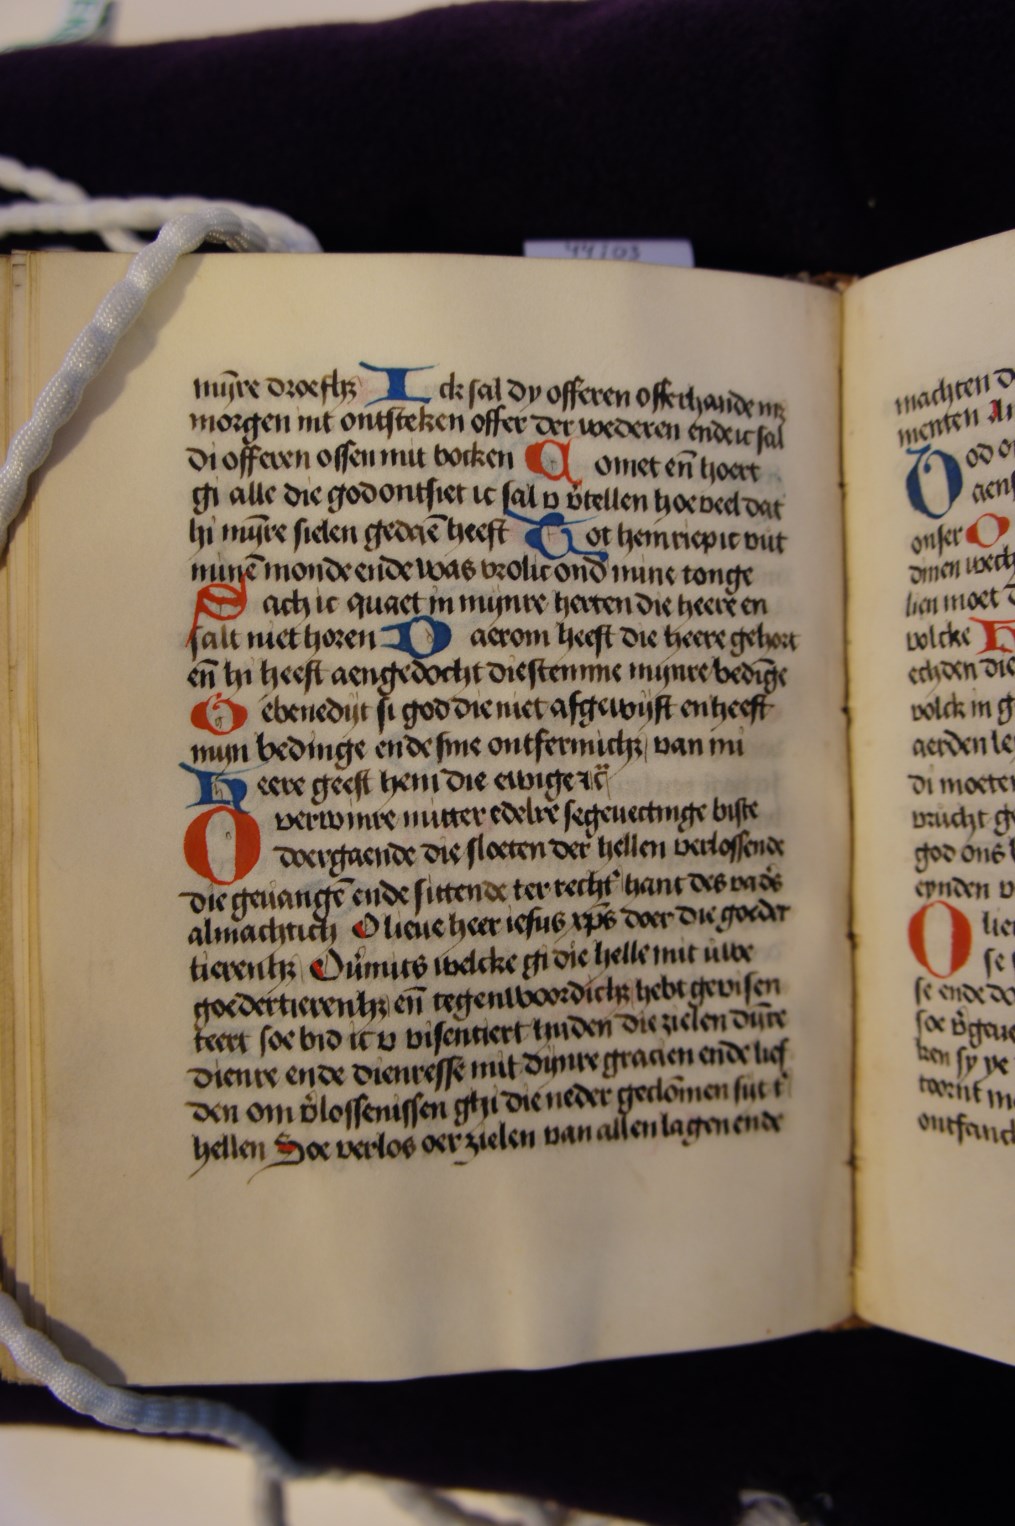 44J03
mỹre droefhz Ick sal dy offeren offerhande mz
morgen mt ontsteken offer der wederen ende ic sal
di offeren ossen mit bocken Comet en̄ hoert
gi alle die god ontsiet ic sal v v̓tellen hoe veel dat
hi mỹre sielen gedaē heeft Tot hem riep ic vut
minē monde ende was vrolic ond̓ mine tonge
Sach ic quaet in mijnre herten die heere en
salt niet horen Daerom heeft die heere gehort
en̄ hi heeft aengedocht die stemme mijnre bedīge
Gebenedijt si god die niet afgewijst en heeft
mijn bedinge ende sine ontfermichz van mi
Heere geeft hem die ewige rc̄
O verwinre mitter edelre segevectinge biste
doergaende die sloeten der hellen verlossende
die geuangē ende sittende ter recht̓ hant des vad̓s
almachtich O lieue heer iesus xp̄s doer die goeder
tierenhz Oūmits welcke gi die helle mit uwe
goedertierenhz en̄ tegenwoordichz hebt gevisen
teert soe bid ic v visentiert huden die zielen dīre
dienre ende dienresse mit dijnre gracien ende lief
den om v̓lossenissen ghi die neder geclōmen sut t̓
hellen Soe verlos oer zielen van allen lagen ende
machten
menten
God
onser O
dinen
lien moet
volcke
echden die
volck in g
aerden
di moeten
vrucht
god ons
eynden
O lie
se
se ende
soe
ken sy
toernt
ontfanc